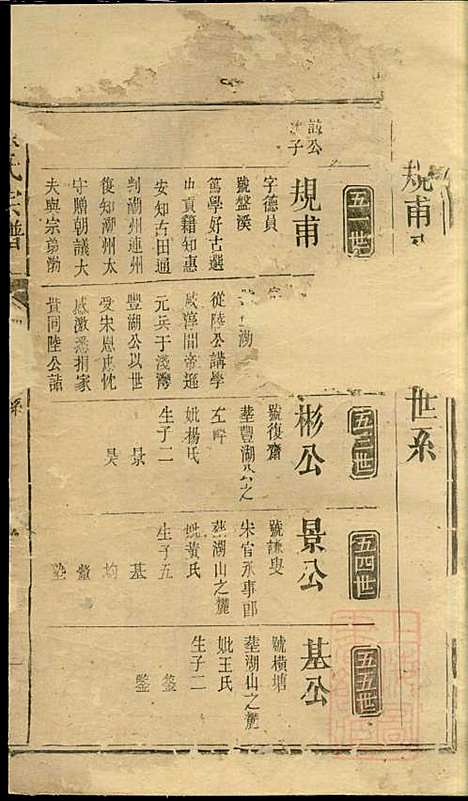 規甫
世系
五二世
規甫
字德員
號盤溪
篤學好古選
由貢籍知惠
安知古田通
判潮州連州
復知潮州太
守贈朝議大
夫與宗弟渤
從陸公講學
咸淳間帝遜
元兵于淺灣
豐湖公以世
受宋恩忠忱
感激悉捐家
貲同陸公誥
五三世
彬公
號復齋
葬豐湖公之
左畔
妣楊氏
生子二
景
昊
五四世
景公
號謙叟
宋官承事郎
葬湖山之麓
妣黃氏
生子五
基
均
五五世
基公
號橫塘
葬湖山之麓
妣王氏
生子二
鑒
氏宗譜